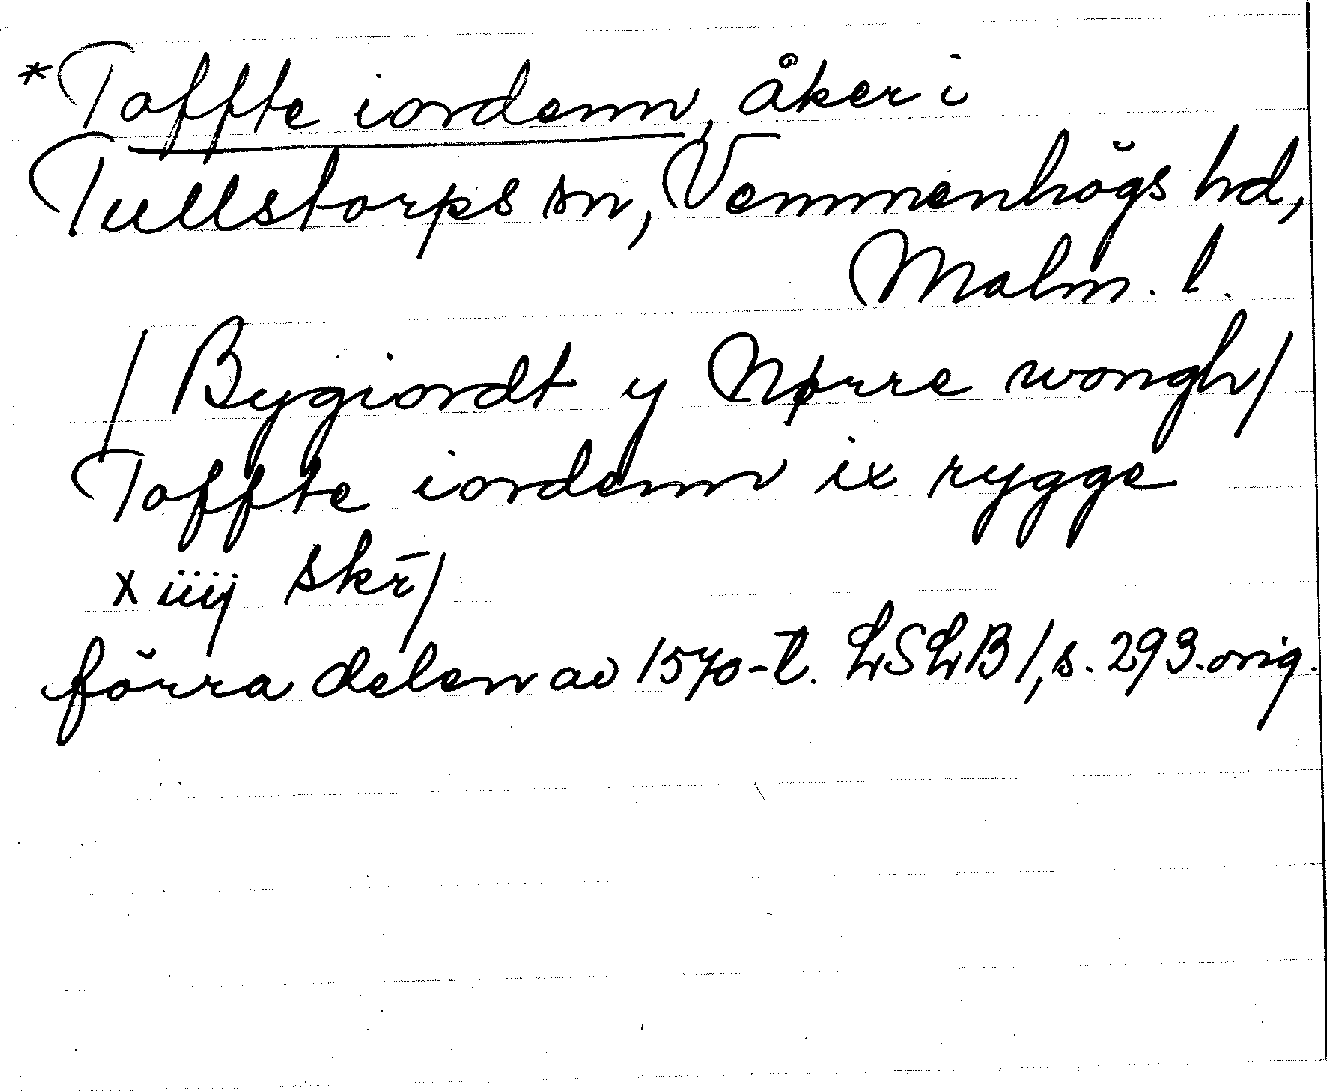 *Toffte iordenn, åker i
Tullstorps sn, Vemmenhögs hd,
Malm. l.
/ Bygiordt y Nørre wongh/
Toffte iordenn ix rygge
x iiij skr̄/
förra delen av 1570-t. LSLB 1, s. 293. orig.